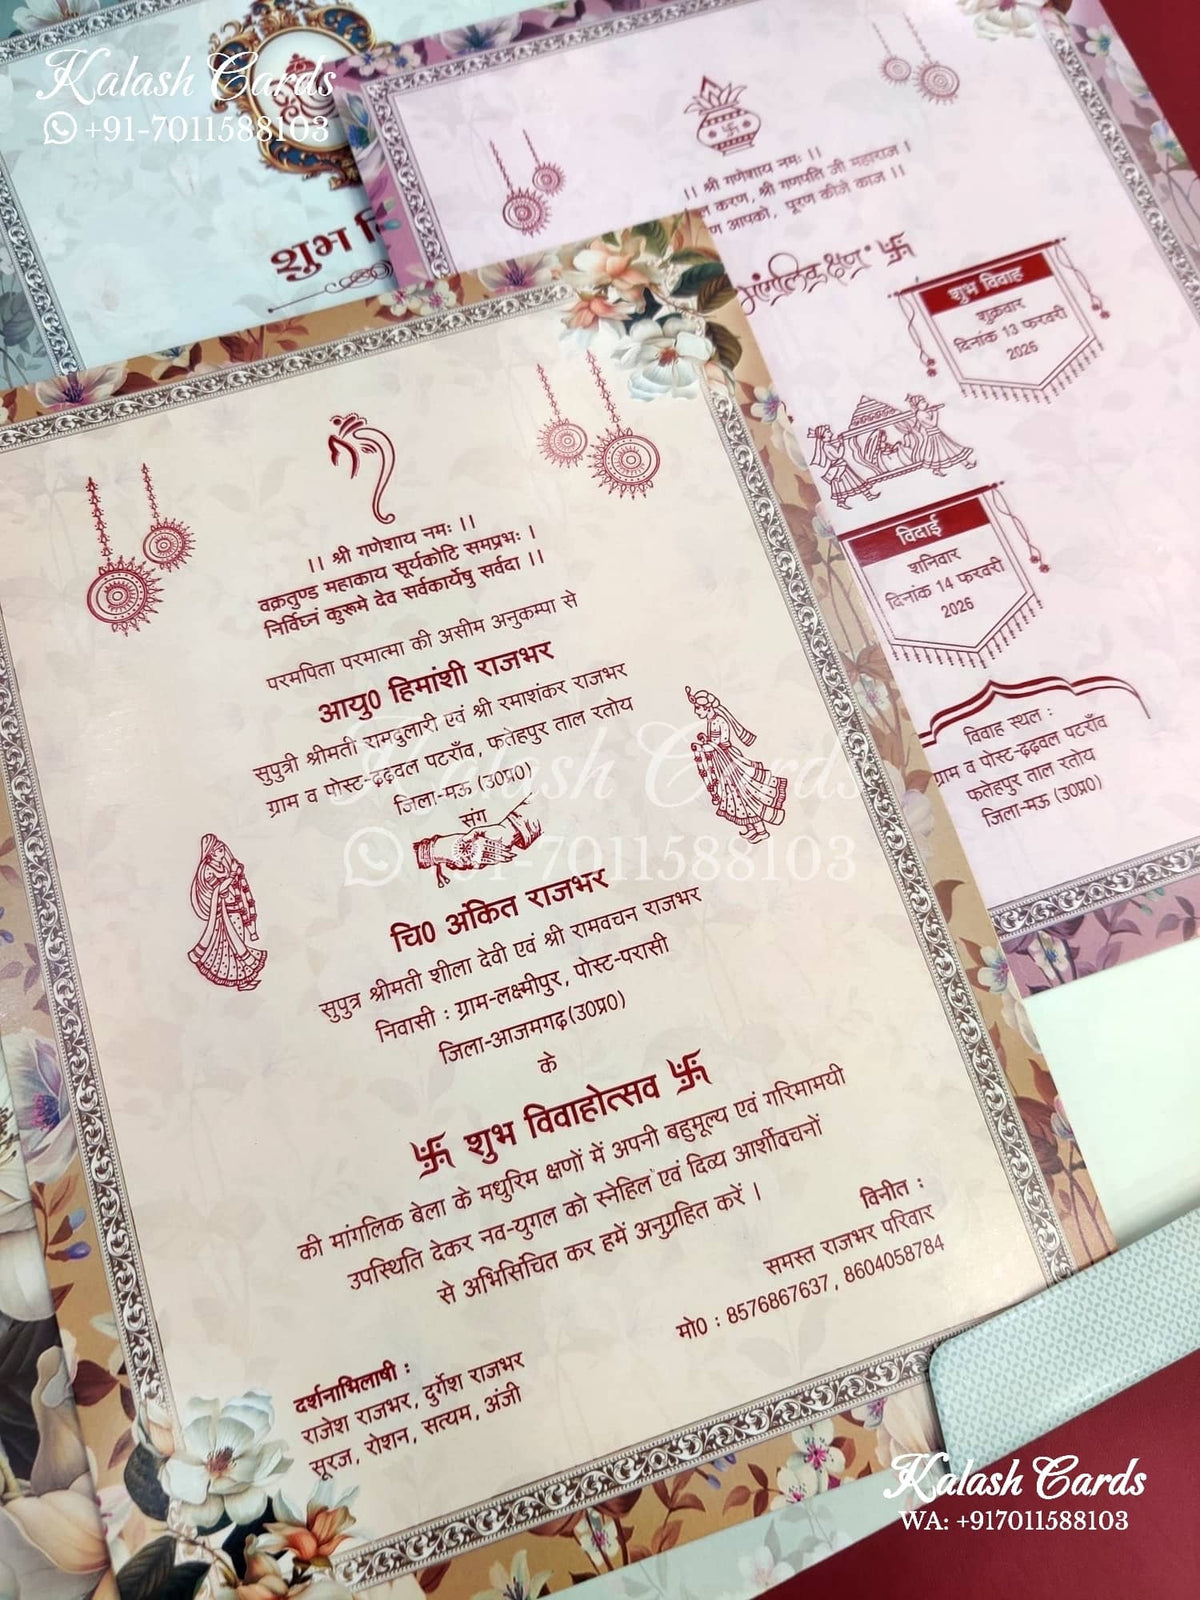 Kalash Cards
+91-7011588103
शुभ
।। श्री गणेशाय नमः ।।
करण, श्री गणपति जी महाराज ।
आपको, पूरण कीजे काज ।।
मांगलिक क्षण
शुभ विवाह
शुक्रवार
दिनांक 13 फरवरी
2026
विदाई
शनिवार
दिनांक 14 फरवरी
2026
विवाह स्थल :
ग्राम व पोस्ट-ढ़ढ़वल पटराँव
फतेहपुर ताल रतोय
जिला-मऊ (उ0प्र0)
।। श्री गणेशाय नमः ।।
वक्रतुण्ड महाकाय सूर्यकोटि समप्रभः ।
निर्विघ्नं कुरूमे देव सर्वकार्येषु सर्वदा ।।
परमपिता परमात्मा की असीम अनुकम्पा से
आयु0 हिमांशी राजभर
सुपुत्री श्रीमती रामदुलारी एवं श्री रमाशंकर राजभर
ग्राम व पोस्ट-ढ़ढ़वल पटराँव, फतेहपुर ताल रतोय
जिला-मऊ (उ0प्र0)
संग
Kalash Cards
+91-7011588103
चि0 अंकित राजभर
सुपुत्र श्रीमती शीला देवी एवं श्री रामवचन राजभर
निवासी : ग्राम-लक्ष्मीपुर, पोस्ट-परासी
जिला-आजमगढ़(उ0प्र0)
के
卐 शुभ विवाहोत्सव 卐
की मांगलिक बेला के मधुरिम क्षणों में अपनी बहुमूल्य एवं गरिमामयी
उपस्थिति देकर नव-युगल को स्नेहिल एवं दिव्य आर्शीवचनों
से अभिसिंचित कर हमें अनुग्रहित करें ।
विनीत :
समस्त राजभर परिवार
मो0 : 8576867637, 8604058784
दर्शनाभिलाषी :
राजेश राजभर, दुर्गेश राजभर
सूरज, रोशन, सत्यम, अंजी
Kalash Cards
WA: +917011588103